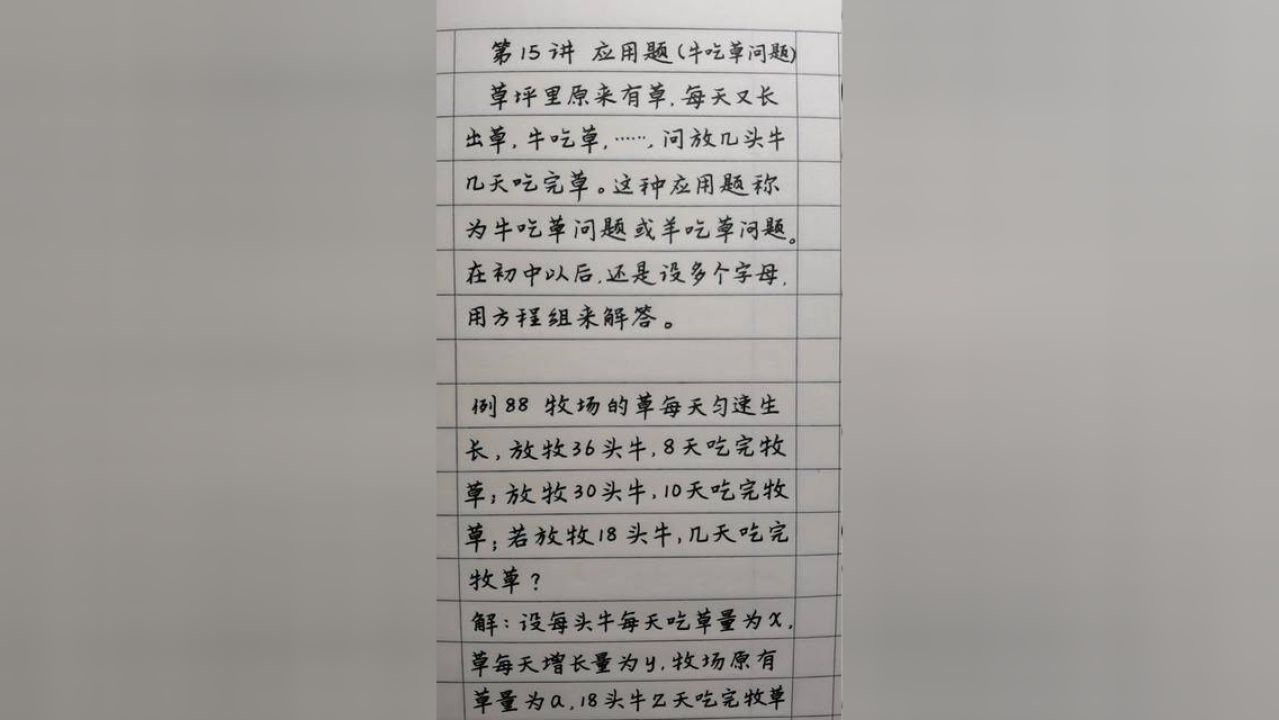 第15讲 应用题(牛吃草问题)
草坪里原来有草,每天又长
出草,牛吃草,……,问放几头牛
几天吃完草。这种应用题称
为牛吃草问题或羊吃草问题。
在初中以后,还是设多个字母,
用方程组来解答。
例88 牧场的草每天匀速生
长,放牧36头牛,8天吃完牧
草;放牧30头牛,10天吃完牧
草;若放牧18头牛,几天吃完
牧草?
解:设每头牛每天吃草量为x,
草每天增长量为y,牧场原有
草量为a,18头牛Z天吃完牧草